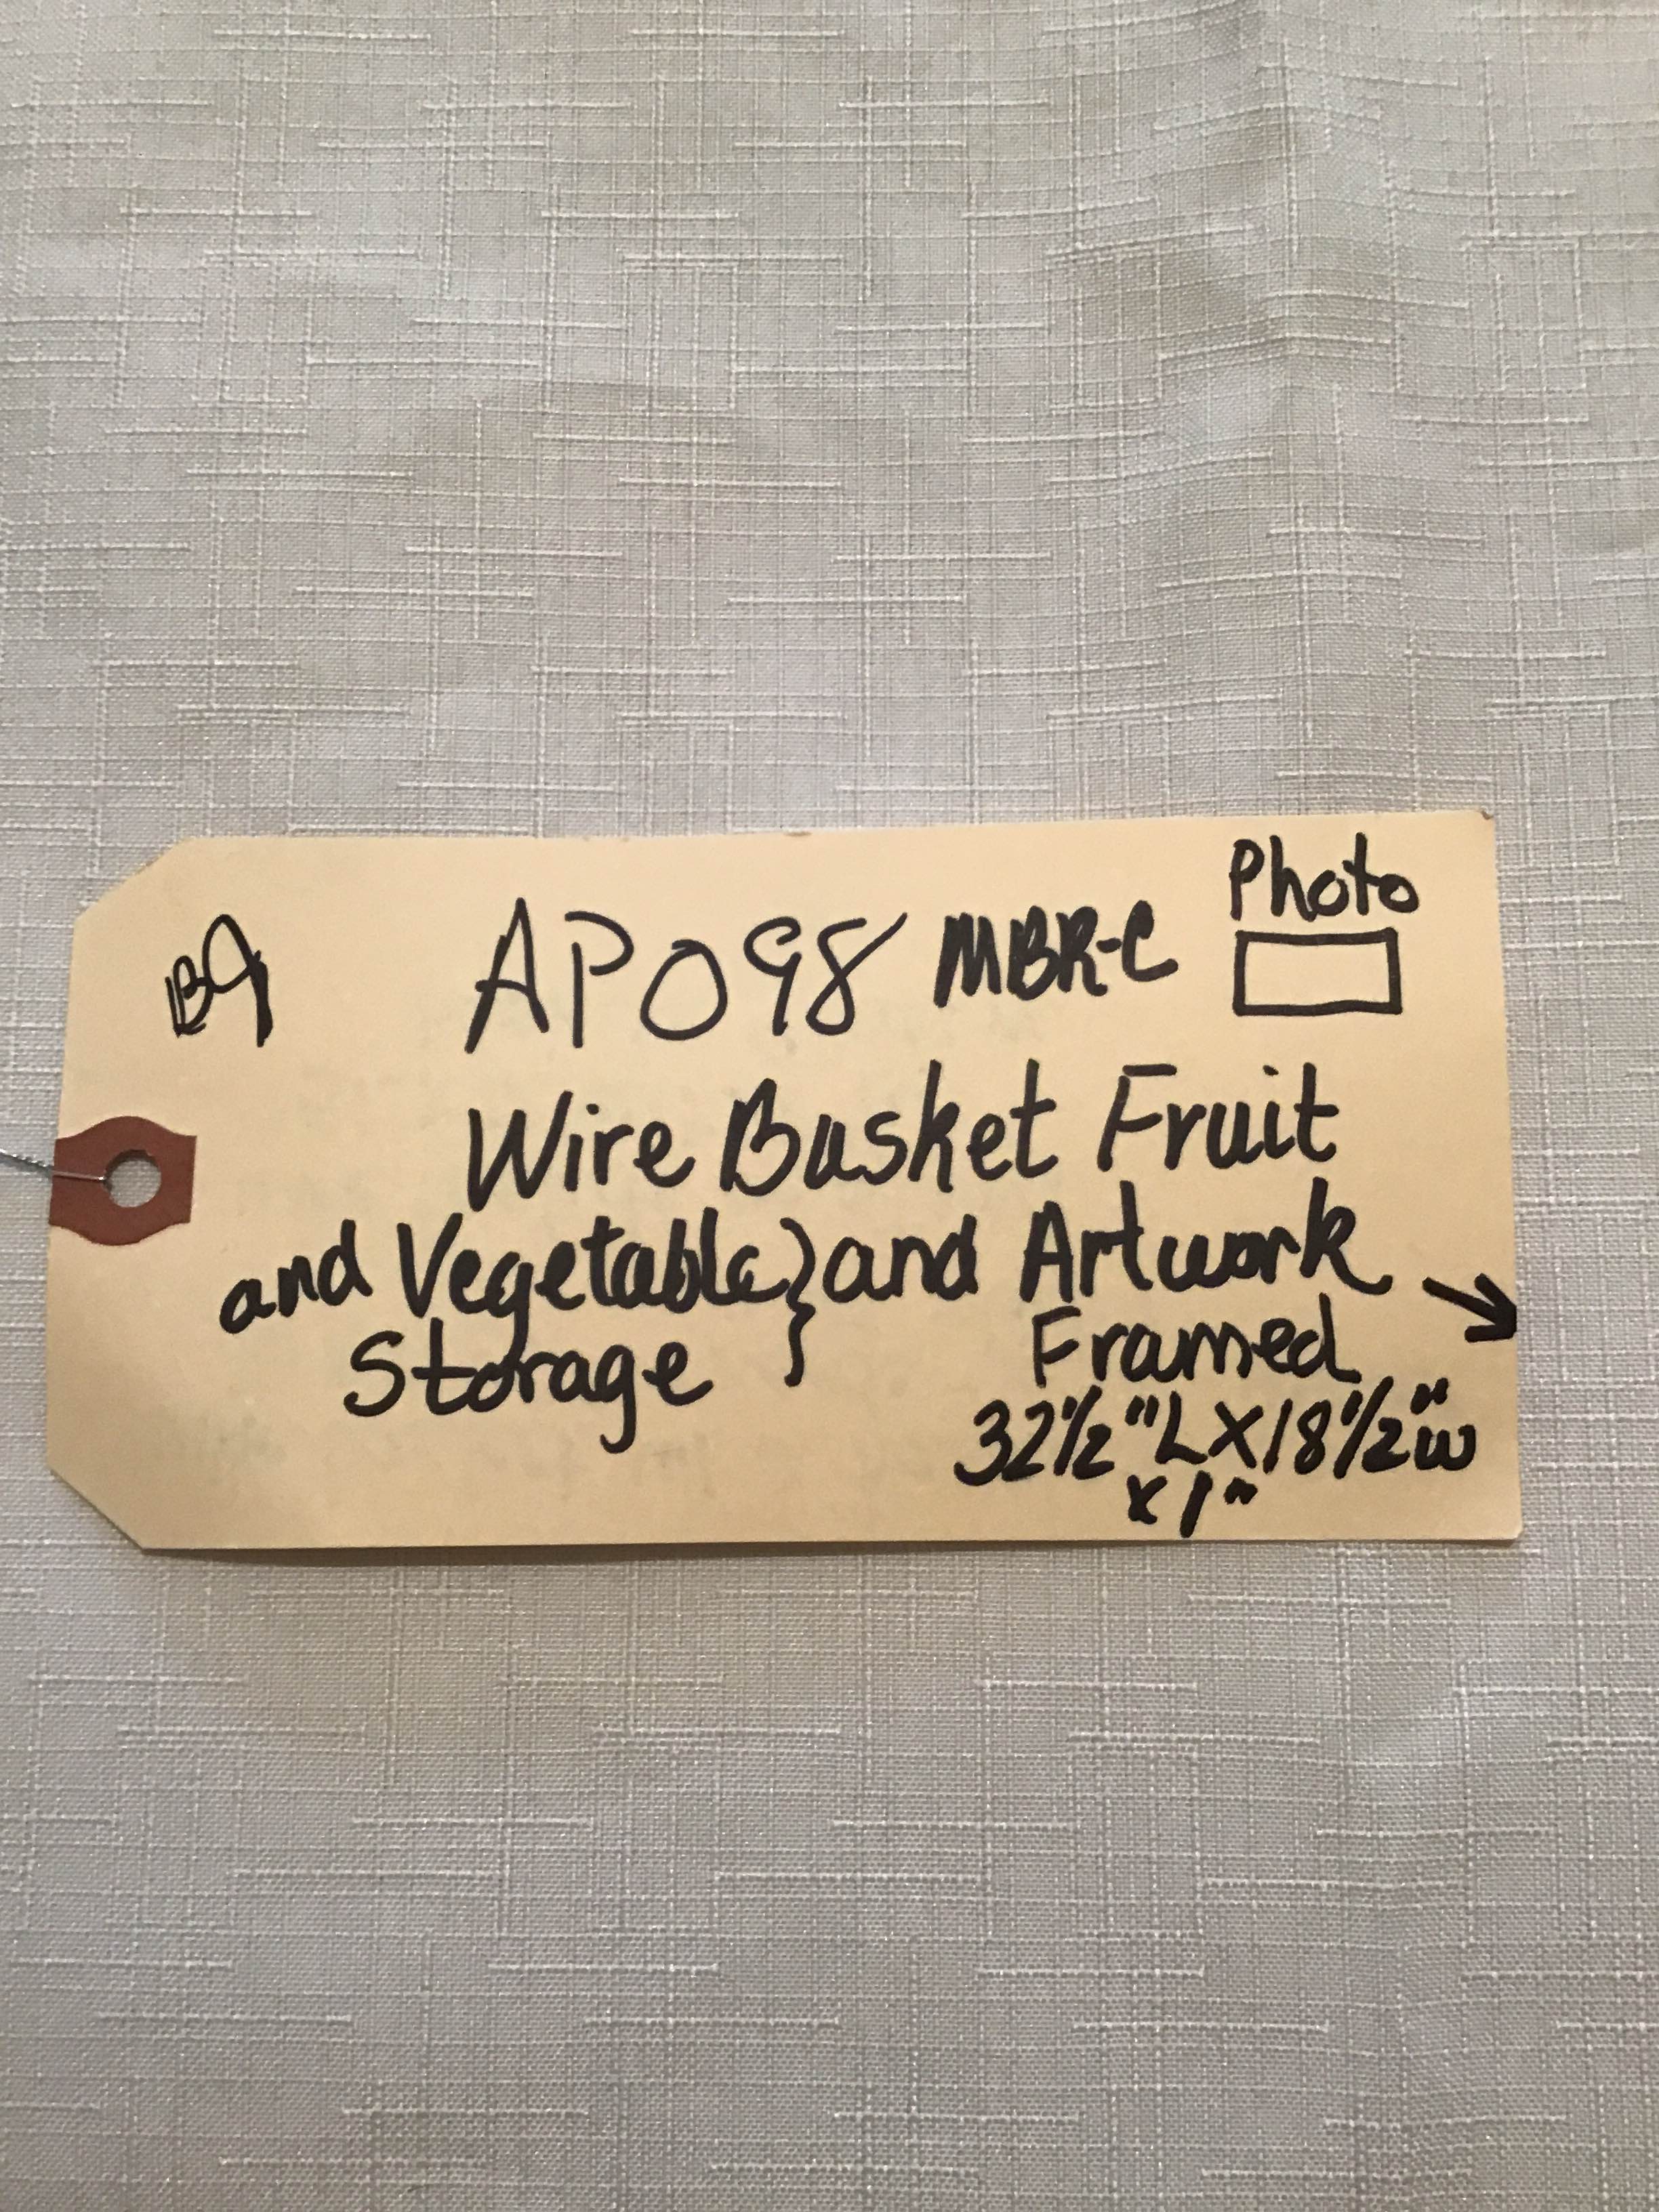 Photo
AP098 MBR-C
Wire Basket Fruit
and Vegetable } and Artwork →
Storage Framed
32 1/2" L X 18 1/2" W
x 1"